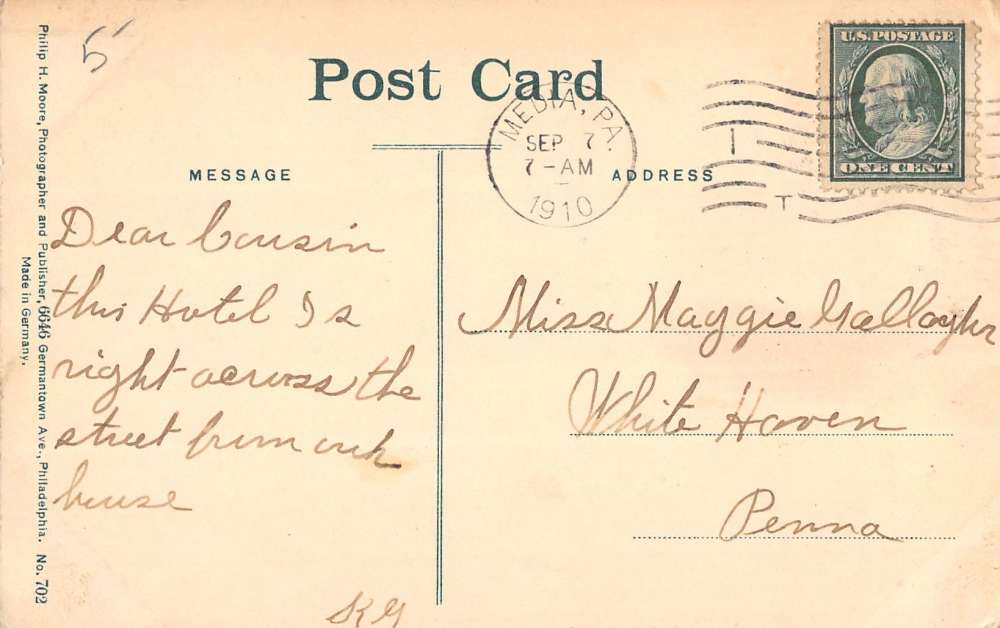 5
Post Card
U.S. POSTAGE
ONE CENT
MEDIA, PA.
SEP 7.
7-AM
1910
T
MESSAGE
ADDRESS
Dear Cousin
this Hotel Is
right across the
street from our
house
S K G
Miss Maggie Gallagher
White Haven
Penna
Philip H. Moore, Photographer and Publisher, 6646 Germantown Ave., Philadelphia. No. 702
Made in Germany.